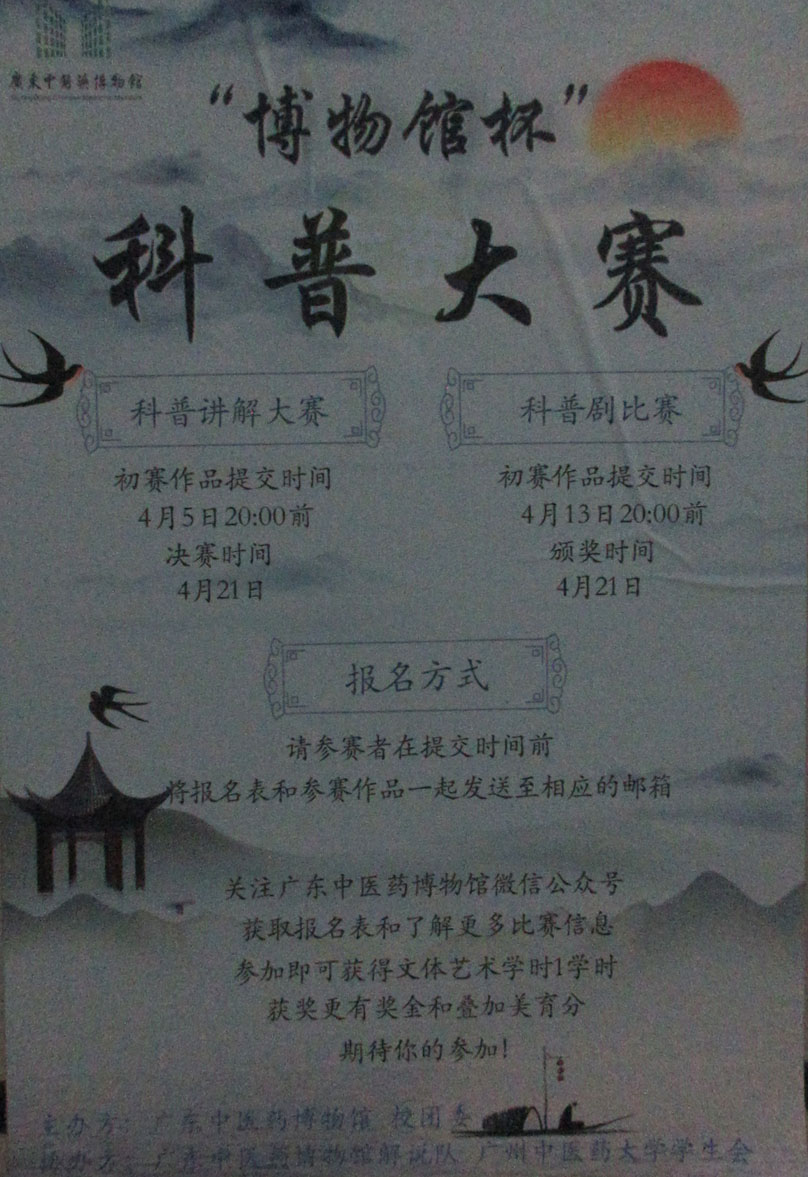 廣東中醫藥博物館
“博物馆杯”
科普大赛
科普讲解大赛
初赛作品提交时间
4月5日20:00前
决赛时间
4月21日
科普剧比赛
初赛作品提交时间
4月13日20:00前
颁奖时间
4月21日
报名方式
请参赛者在提交时间前
将报名表和参赛作品一起发送至相应的邮箱
关注广东中医药博物馆微信公众号
获取报名表和了解更多比赛信息
参加即可获得文体艺术学时1学时
获奖更有奖金和叠加美育分
期待你的参加!
主办方：广东中医药博物馆 校团委
协办方：广东中医药博物馆解说队 广州中医药大学学生会